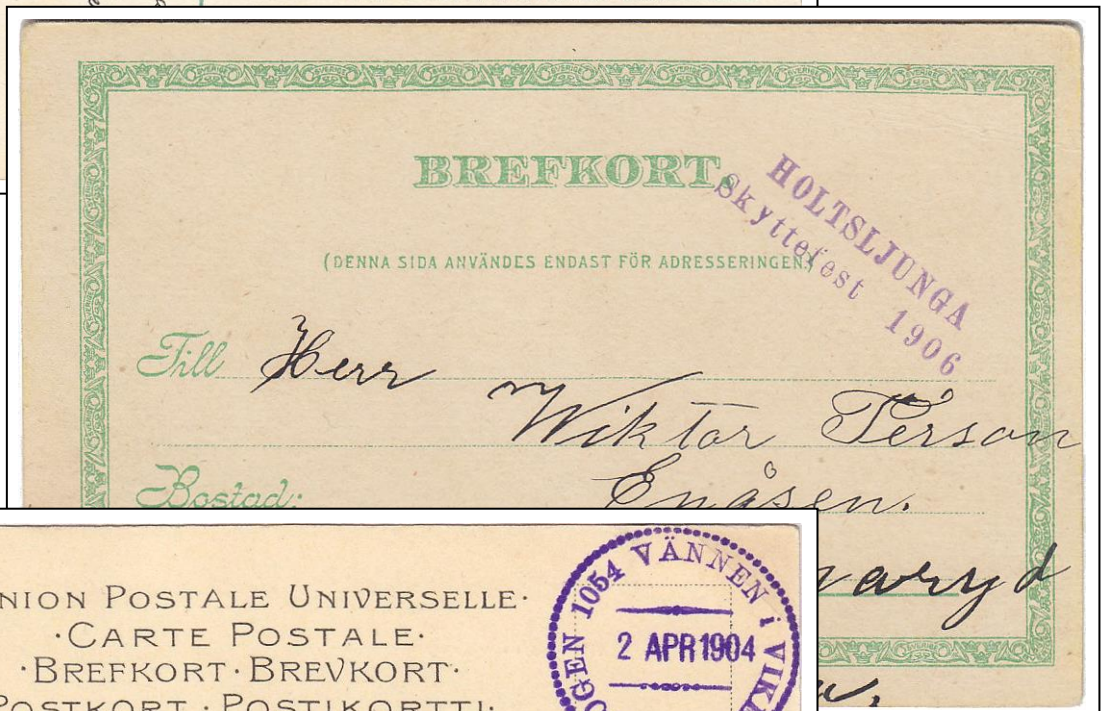 BREFKORT.
HOLTSLJUNGA
Skyttefest 1906
(DENNA SIDA ANVÄNDES ENDAST FÖR ADRESSERINGEN.)
Till Herr
Wiktor Pérson
Bostad: Enåsen.
aryd
NION POSTALE UNIVERSELLE·
·CARTE POSTALE·
·BREFKORT·BREVKORT·
POSTKORT·POSTIKORTTI·
OGEN 1054 VÄNNEN i VIK
2 APR 1904